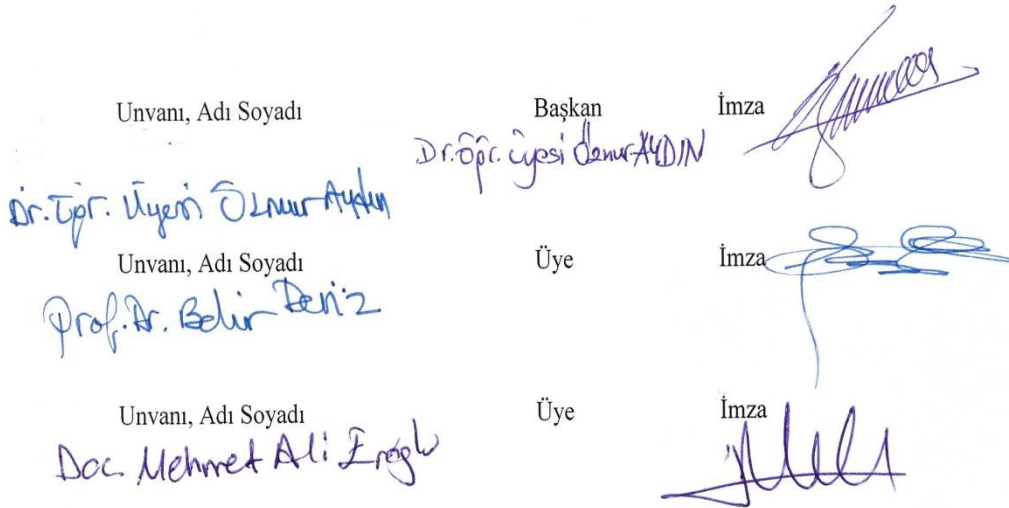 Unvanı, Adı Soyadı Başkan İmza
Dr. Öğr. Üyesi Öznur AYDIN
Dr. Öğr. Üyesi Öznur Aydın
Unvanı, Adı Soyadı Üye İmza
Prof. Dr. Bekir Deniz
Unvanı, Adı Soyadı Üye İmza
Doc. Mehmet Ali Eroğlu